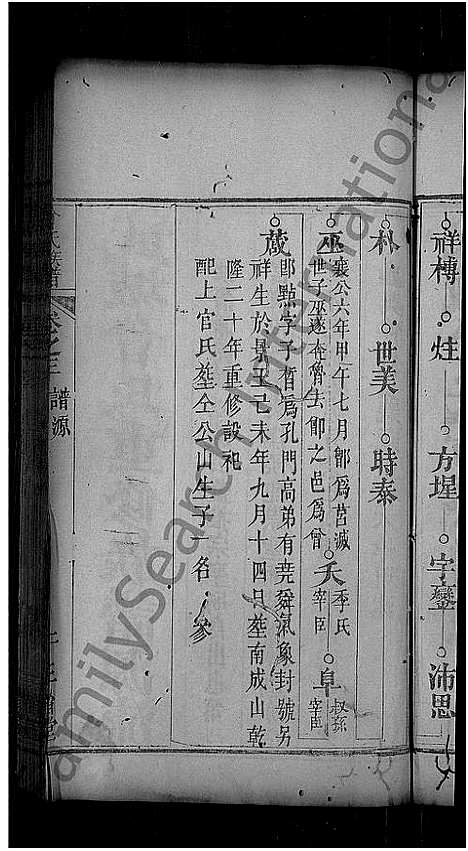 祥槫 炷 方墀 字鑾 沛思
朴 世美 時泰
巫 襄公六年甲午七月鄫爲莒滅
世子巫遂奔魯去鄫之邑爲曾
夭 季氏宰臣
阜 叔孫宰臣
蒧 即點字子晳爲孔門高弟有堯舜氣象封號另
祥生於景王己未年九月十四日塟南成山乾
隆二十年重修設祀
配上官氏塟仝公山生子一名參
氏族譜
卷之三 譜源
FamilySearch International